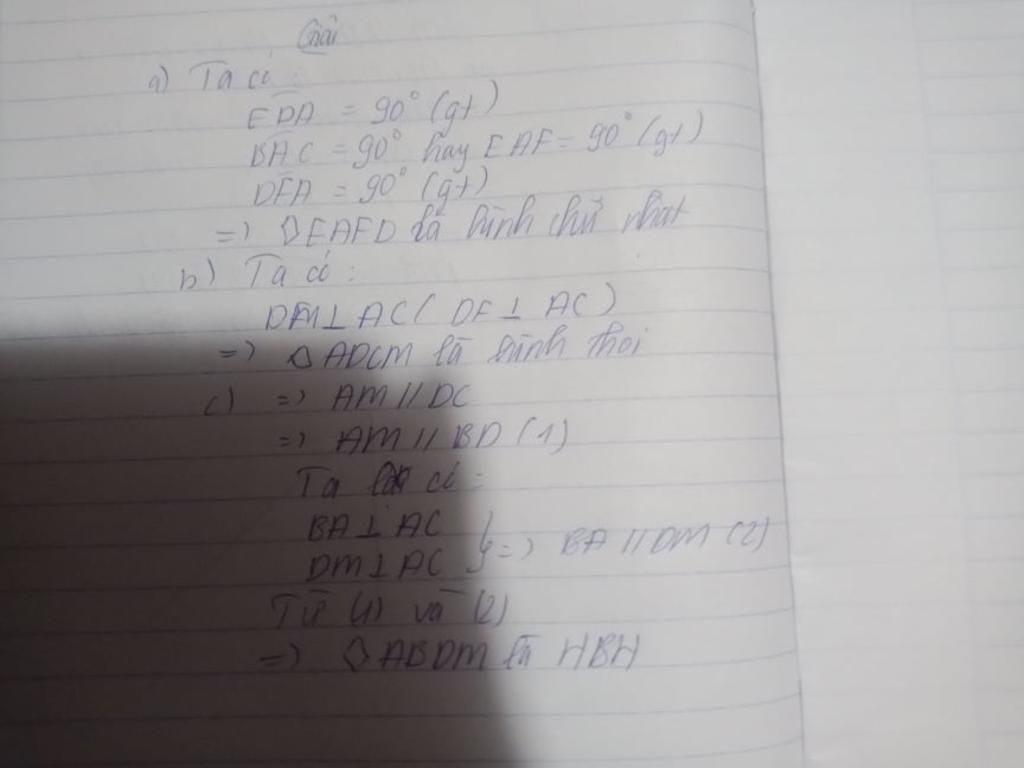 Giải
a) Ta có :
EDA = 90° (gt)
BAC = 90° hay EAF = 90° (gt)
DFA = 90° (gt)
=> ◊EAFD là hình chữ nhat
b) Ta có :
DM ⊥ AC ( DF ⊥ AC )
=> ◊ADCM là hình thoi
c) => AM // DC
=> AM // BD (1)
Ta có :
BA ⊥ AC
DM ⊥ AC } => BA // DM (2)
Từ (1) và (2)
=> ◊ABDM là HBH